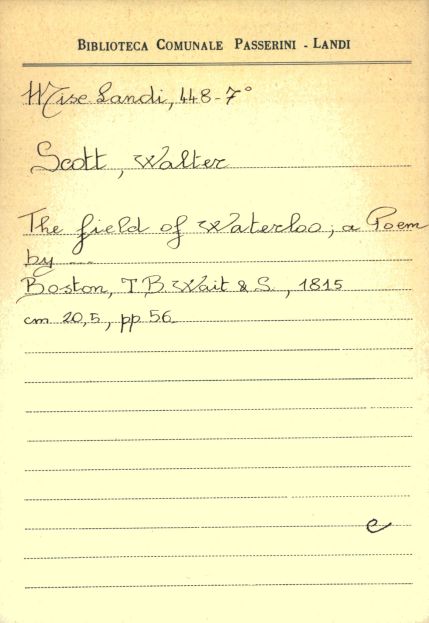 BIBLIOTECA COMUNALE PASSERINI - LANDI
Misc Landi, 448-7°
Scott, Walter
The field of Waterloo; a Poem
by ...
Boston, T.B. Wait & S., 1815
cm 20,5, pp. 56
e